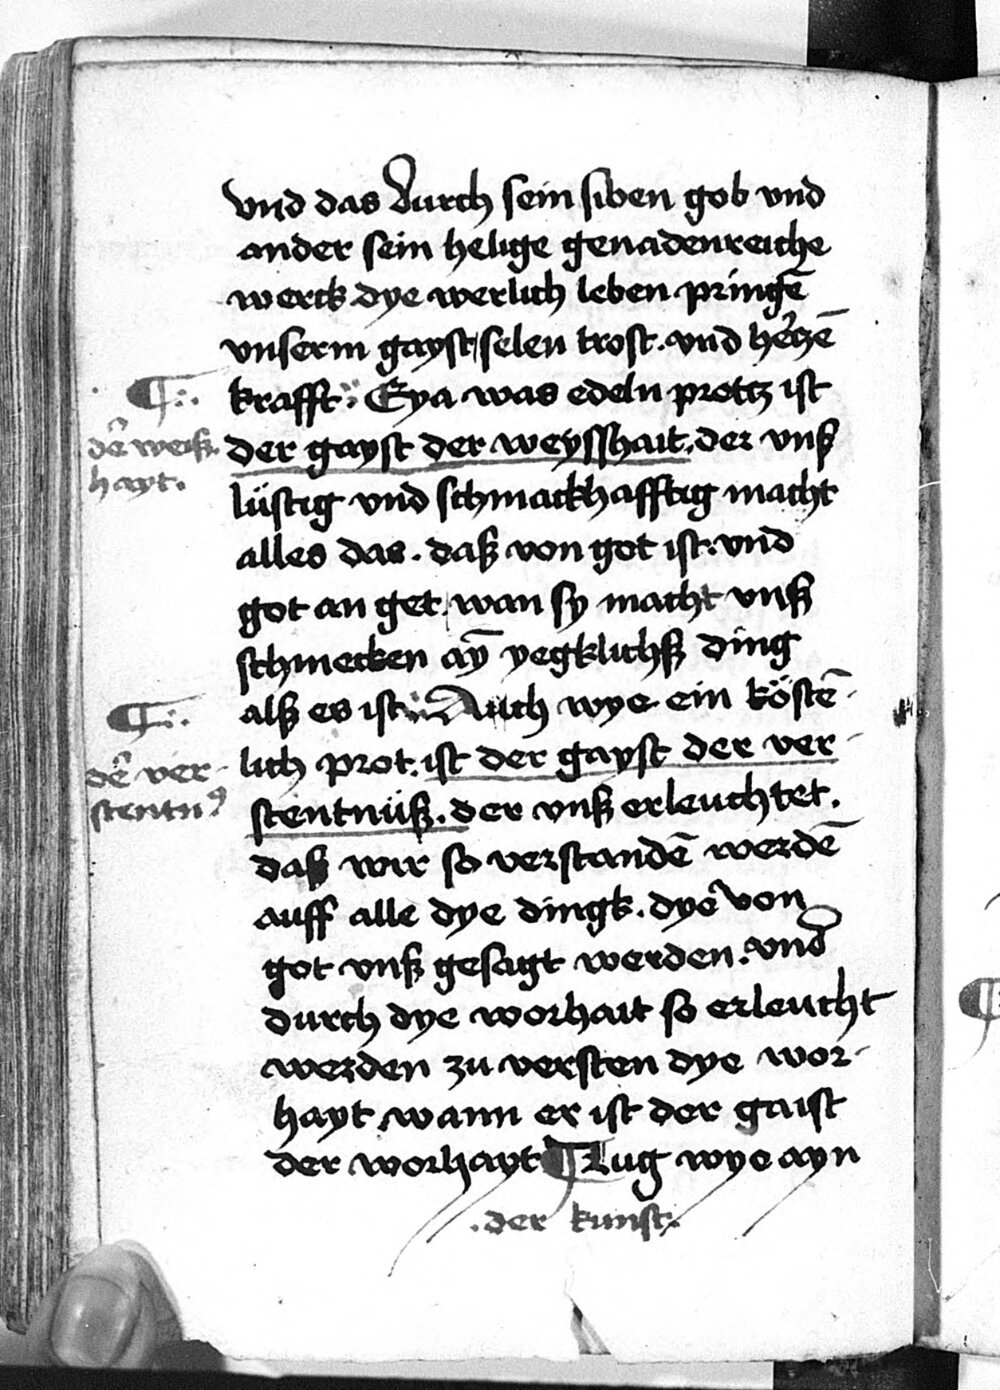 vnd das durch sein siben gob vnd
ander sein helige genadenreiche
werck dye werlich leben pringē
vnserm gayst selen trost. vnd hērczē
krafft Eya was edeln prottz ist
der gayst der weyßhait. der vnß
dē weiß.
hayt.
lüstig vnd schmackhafftig macht
alles das. daß von got ist. vnd
got an get. wan sy macht vnß
schmecken ay̅ yegklichß ding
alß es ist Auch wye ein köstē-
lich prot. ist der gayst der ver-
stentnüß. der vnß erleuchtet.
dē ver-
stentnꝰ
daß wir so verstandē werdē
auff alle dye dingk. dye von
got vnß gesagt werden. vnd
durch dye worhait so erleucht
werden zu versten dye wor-
hayt wann er ist der gaist
der worhayt ¶ Lug wye ayn
. der kunst.